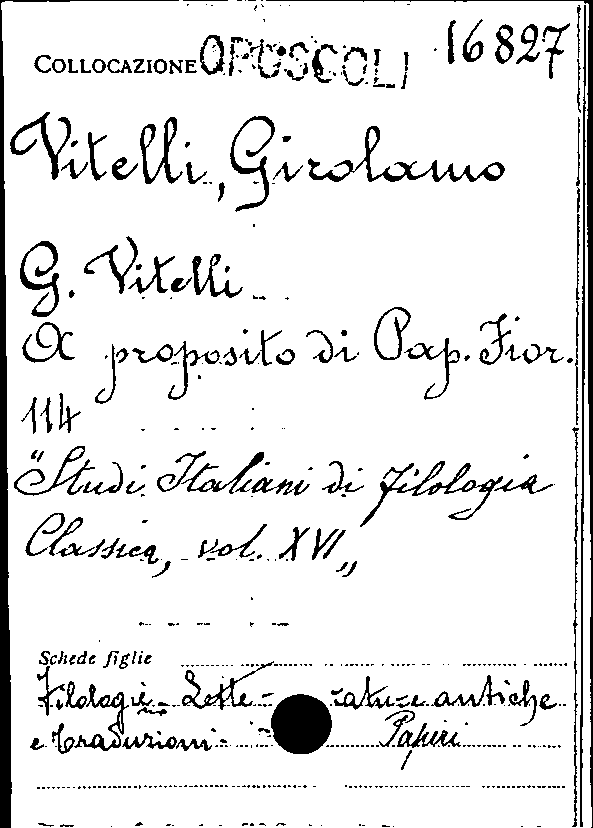 COLLOCAZIONE OPUSCOLI 16827
Vitelli, Girolamo
G. Vitelli
A proposito di Pap. Fior.
114
"Studi Italiani di Filologia
Classica, vol. XVI„
Schede figlie
Filologie - Lette= rature antiche
e traduzioni - Papiri